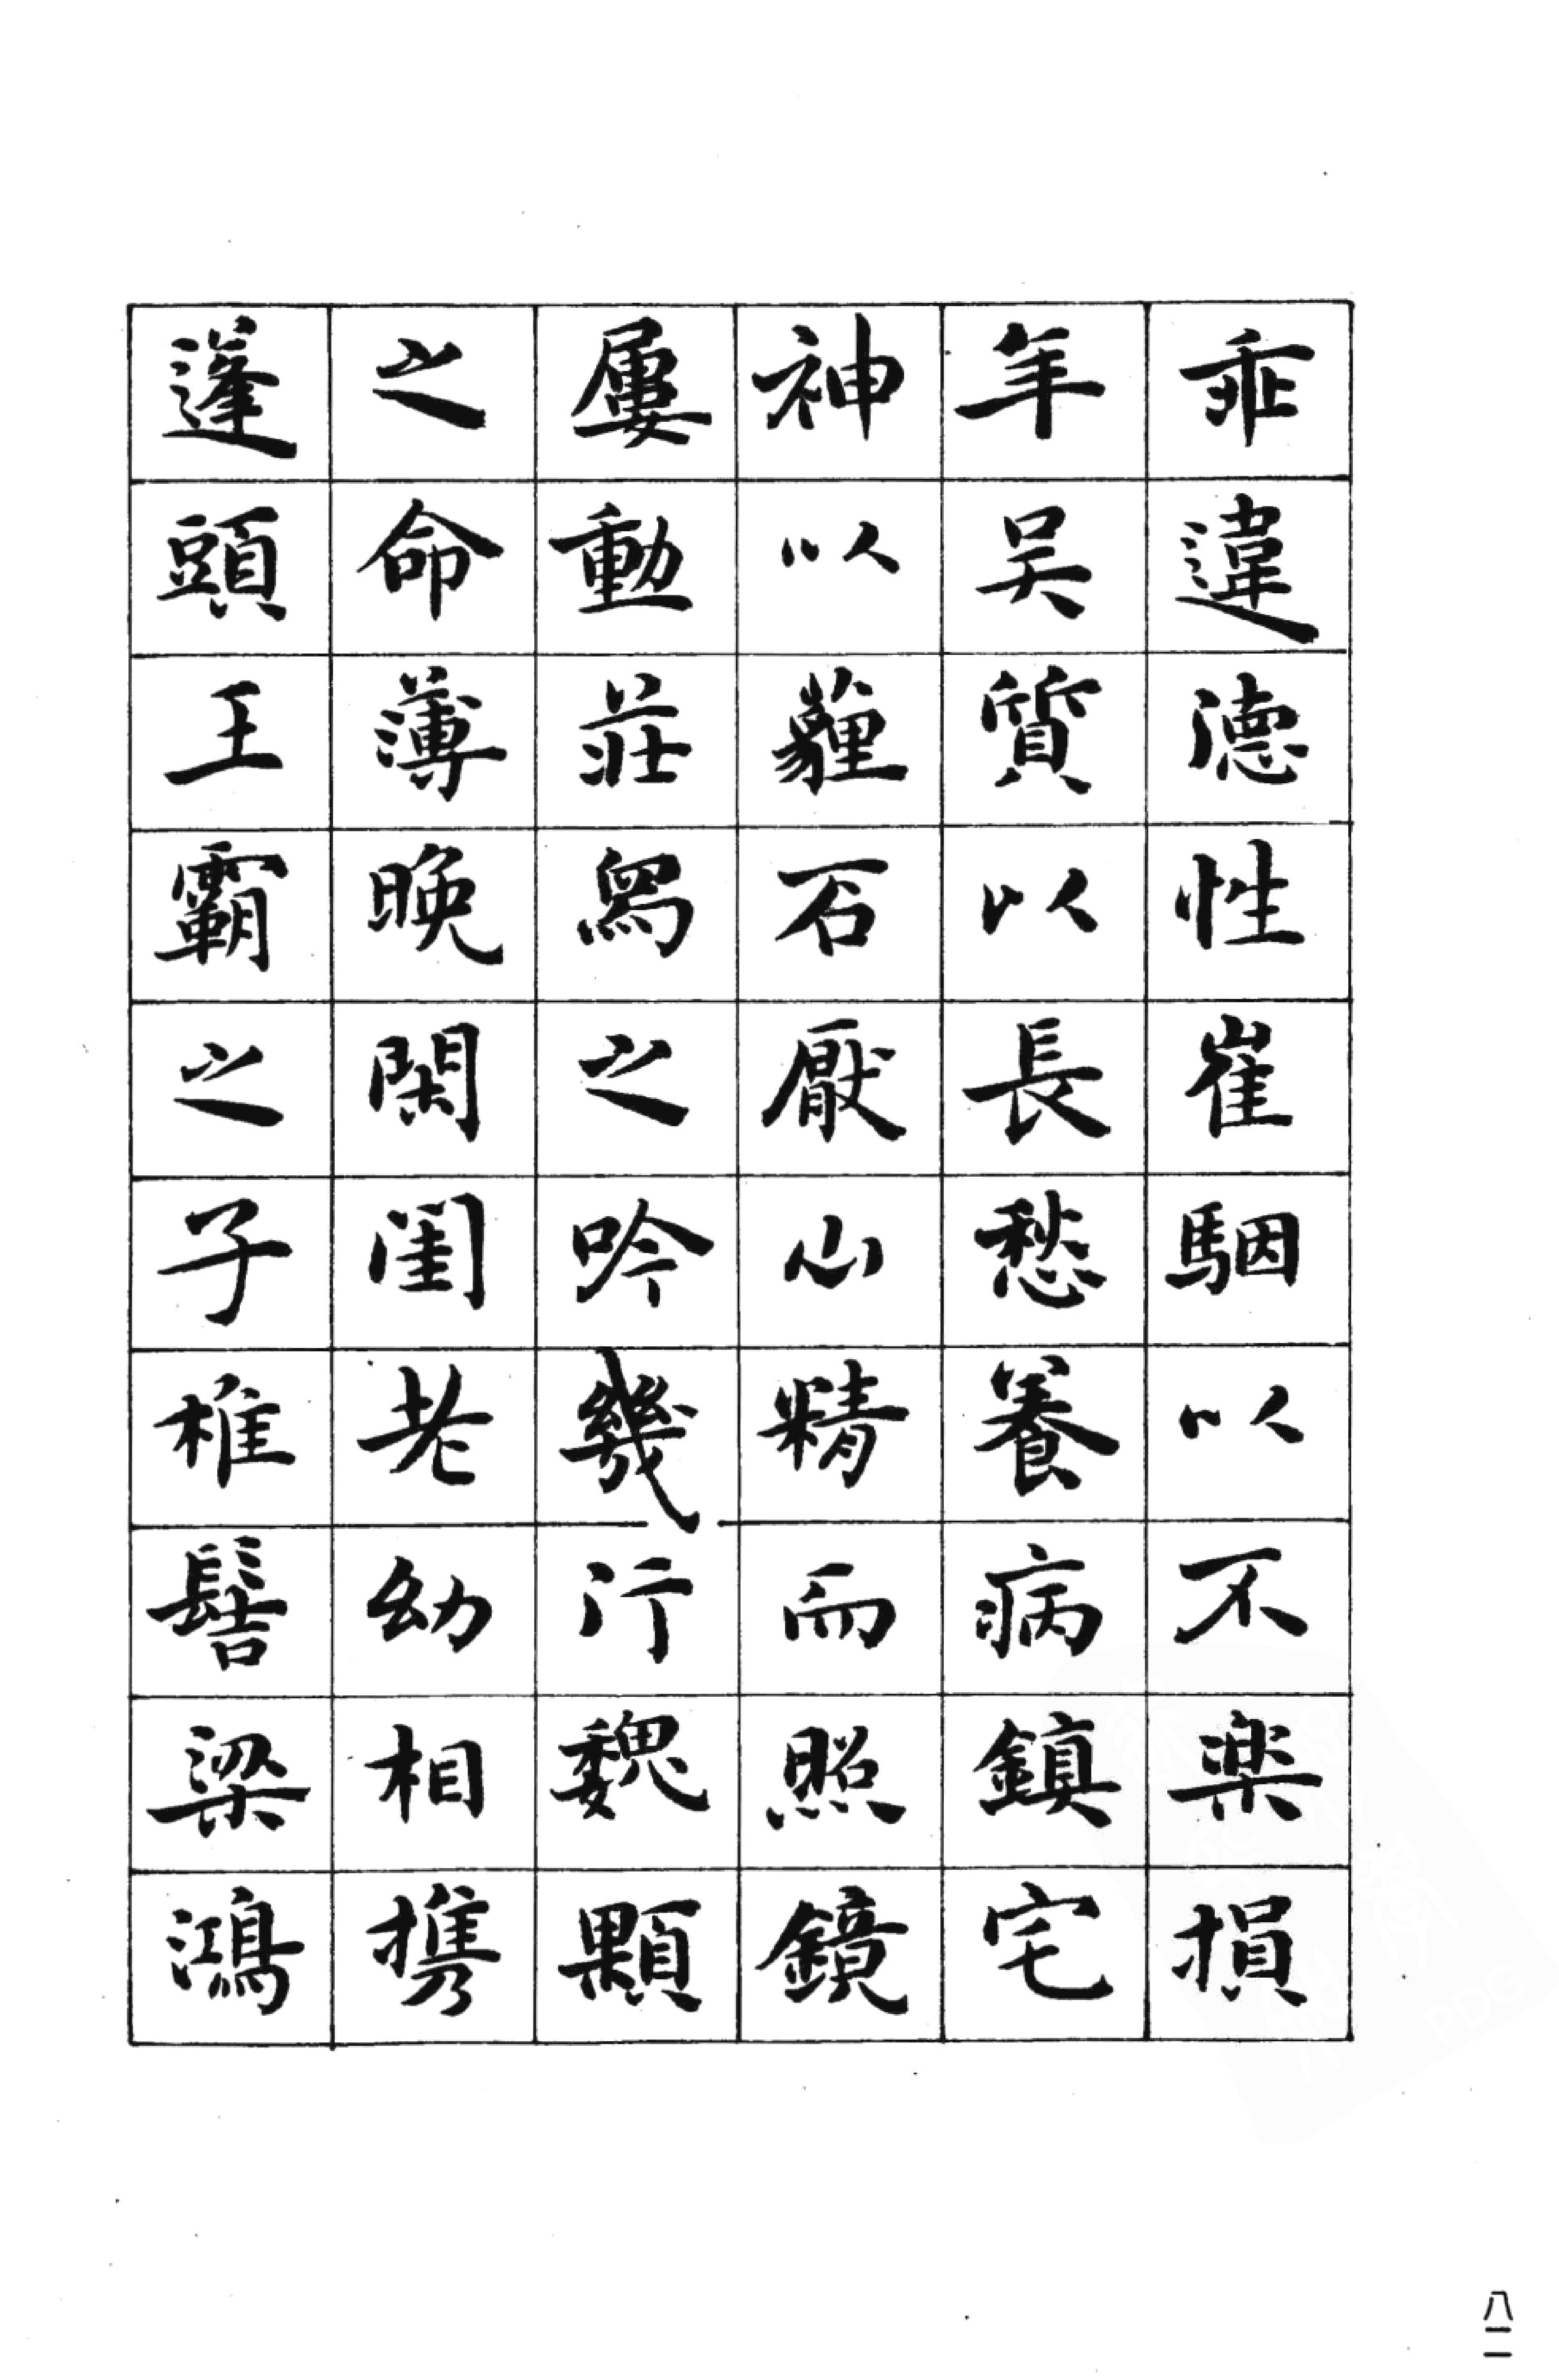 乖違德性崔駰以不楽損
年吴質以長愁養病鎮宅
神以薶石厭山精而照鏡
屢動莊舃之吟幾行魏顆
之命薄晚閑闺老幼相携
蓬頭王霸之子椎髻梁鴻
八二